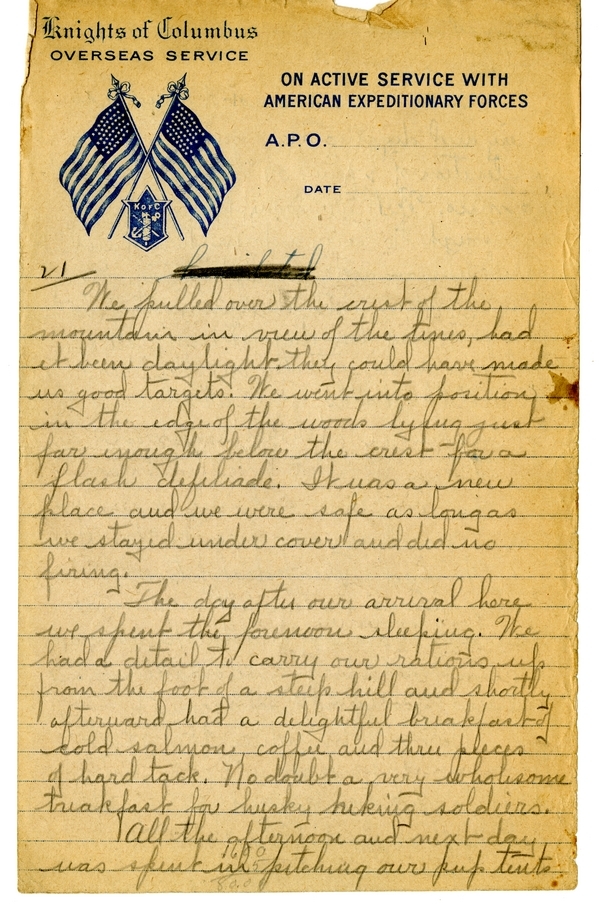 Knights of Columbus
OVERSEAS SERVICE
ON ACTIVE SERVICE WITH
AMERICAN EXPEDITIONARY FORCES
A.P.O.
DATE
K of C
21
We pulled over the crest of the
mountain in view of the lines, had
it been daylight they could have made
us good targets. We went into position
in the edge of the woods lying just
far inough below the crest for a
flash defiliade. It was a new
place and we were safe as long as
we stayed under cover and did no
firing.
The day after our arrival here
we spent the forenoon sleeping. We
had a detail to carry our rations up
from the foot of a steep hill and shortly
afterward had a delightful breakfast of
cold salmon, coffee and three pieces
of hard tack. No doubt a very wholesome
breakfast for husky hiking soldiers.
All the afternoon and next day
was spent in pitching our pup tents